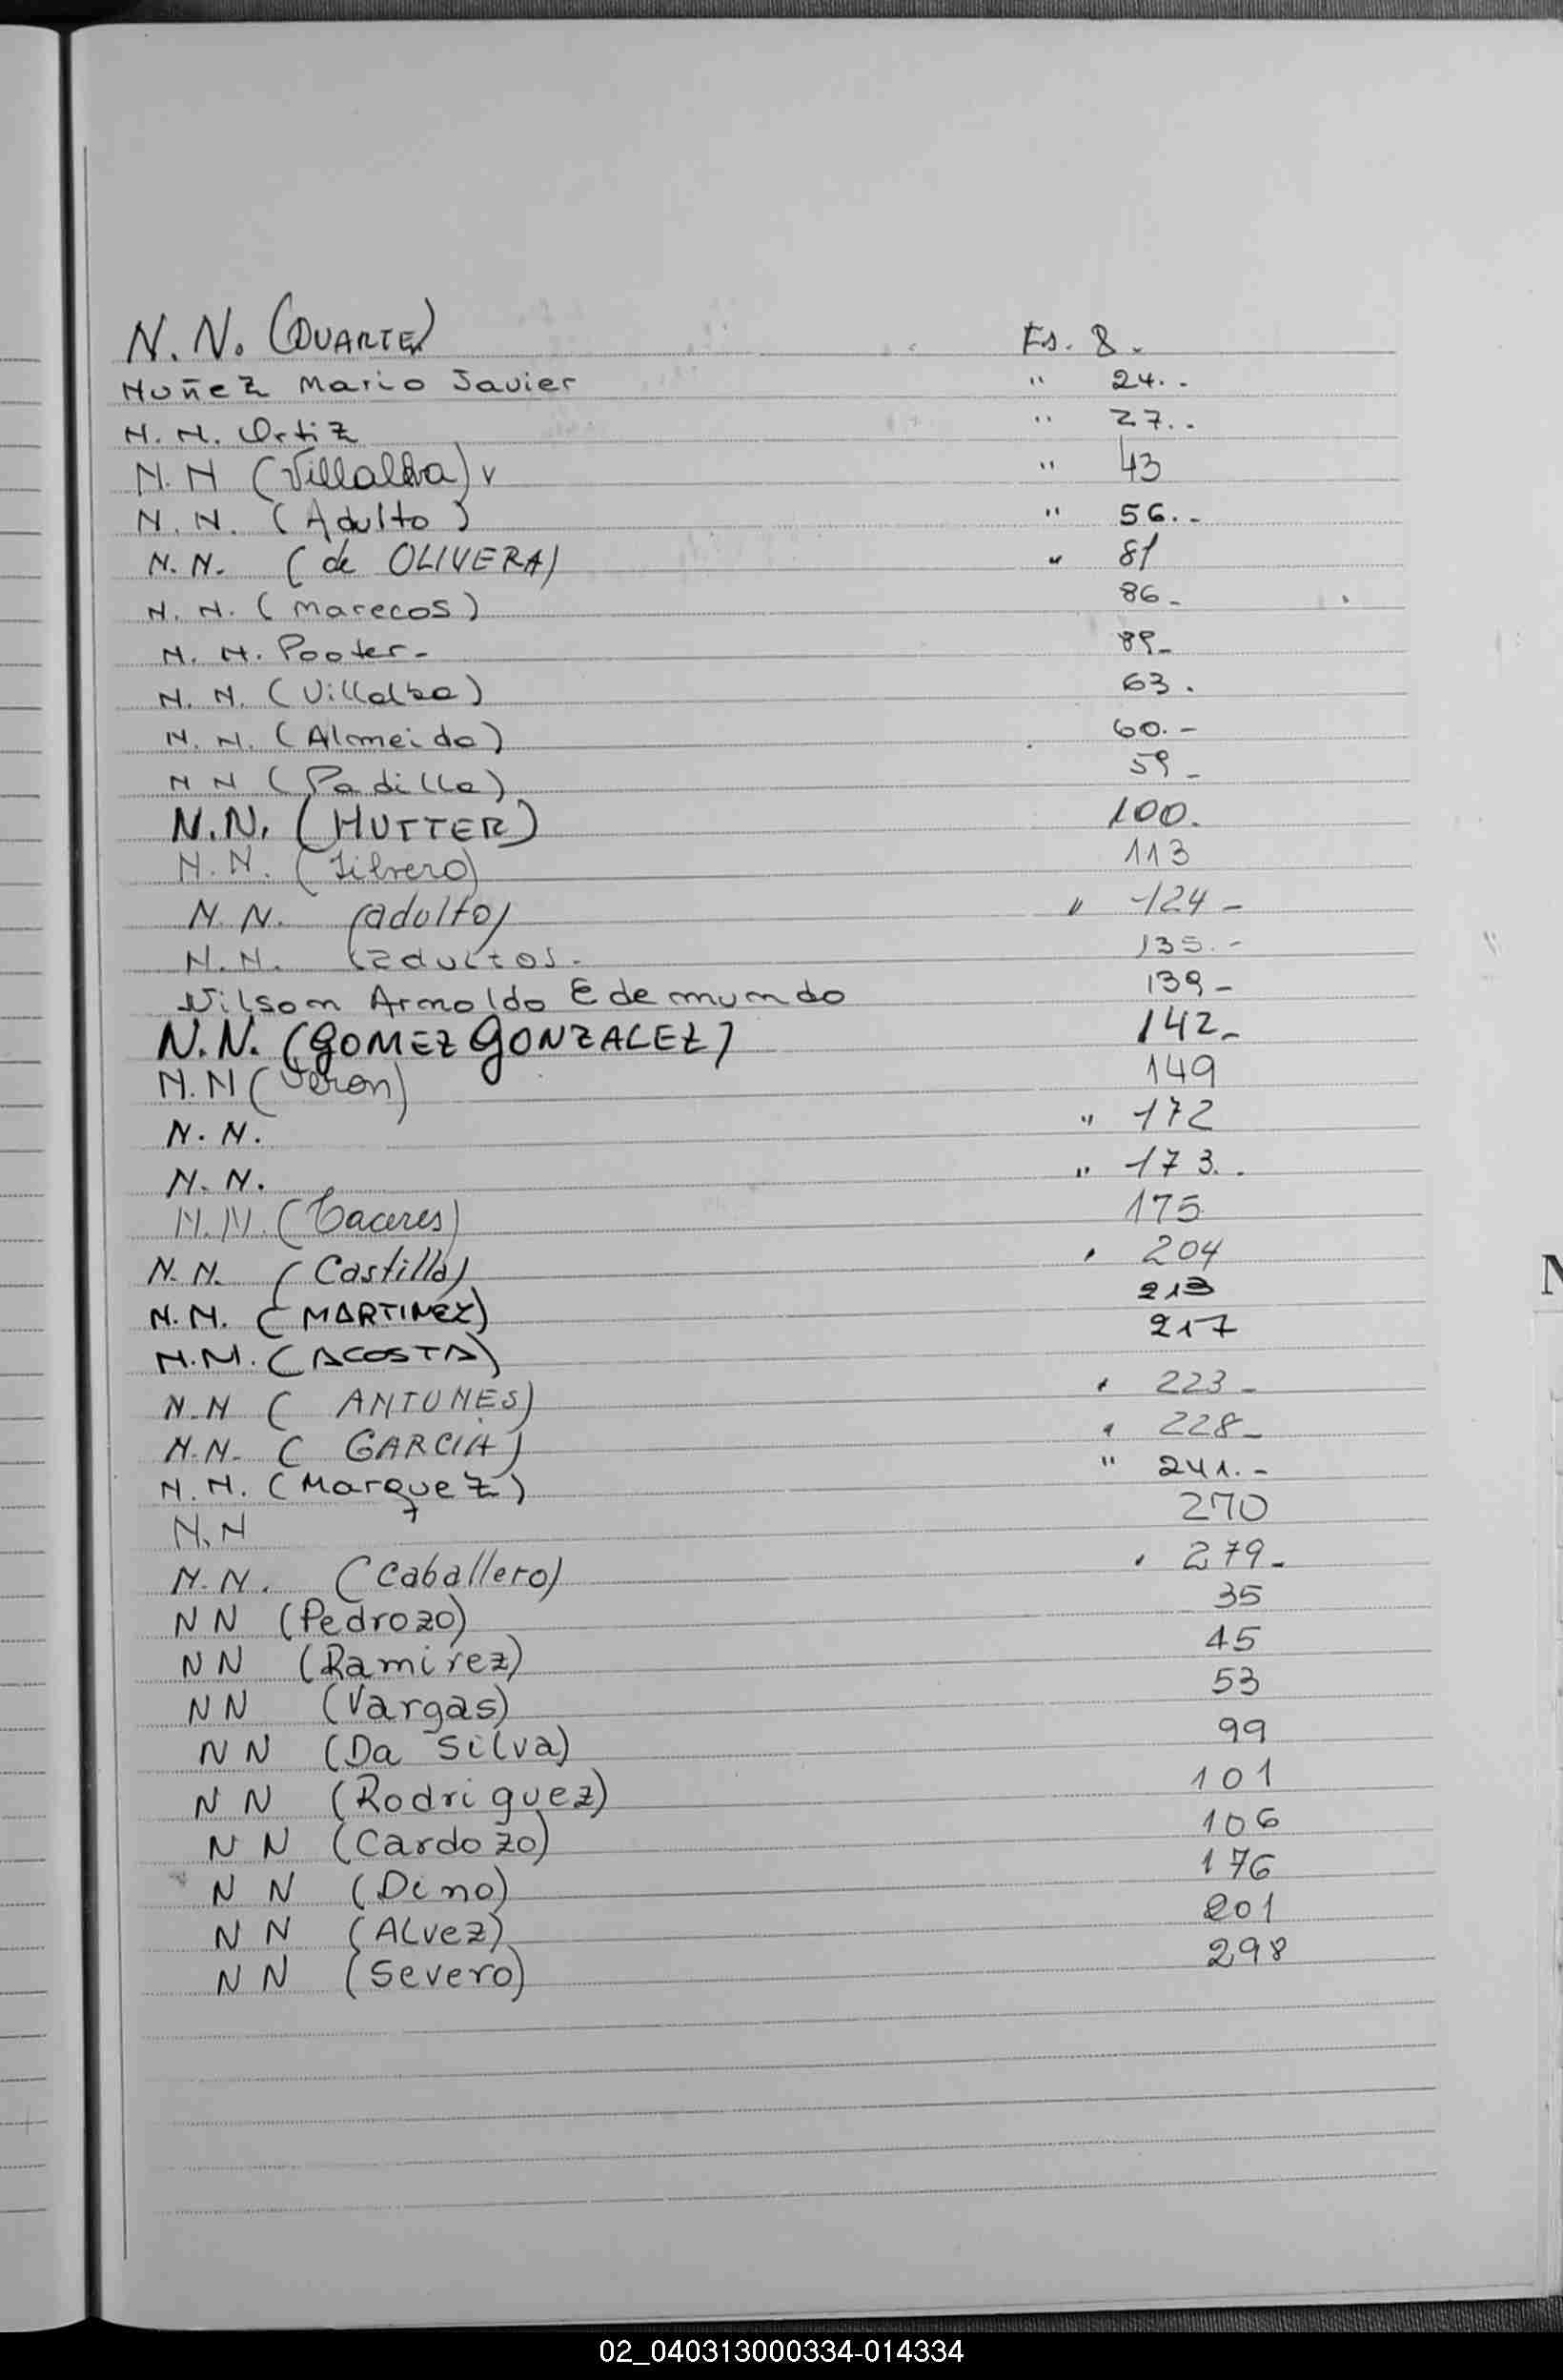 N.N. (DUARTE) Fs. 8.
Nuñez Mario Javier " 24.-
N.N. Ortiz " 27.-
N.N (Villalba) v " 43
N.N. (Adulto) " 56.-
N.N. (de OLIVERA) " 81
N.N. (Marecos) 86-
N.N. Pooter- 89-
N.N. (Villalba) 63.
N.N. (Almeida) 60.-
N N (Padilla) 59-
N.N. (HUTTER) 100.
N.N. (Silvero) 113
N.N. (adulto) " 124-
N.N. (adultos.- 135.-
Nilson Arnoldo Edemundo 139-
N.N. (GOMEZ GONZALEZ) 142-
N.N (Veron) 149
N.N. " 172
N.N. " 173..
N.N. (Caceres) 175
N.N. (Castilla) 204
N.N. (MARTINEZ) 213
N.N. (ACOSTA) 217
N.N ( ANTUNES) 223-
N.N. ( GARCIA) 228-
N.N. (Marquez) " 241.-
N.N 270
N.N. (Caballero) 279-
NN (Pedrozo) 35
NN (Ramirez) 45
NN (Vargas) 53
NN (Da Silva) 99
NN (Rodriguez) 101
NN (Cardozo) 106
NN (Dino) 176
NN (ALvez) 201
NN (Severo) 298
N
02_040313000334-014334